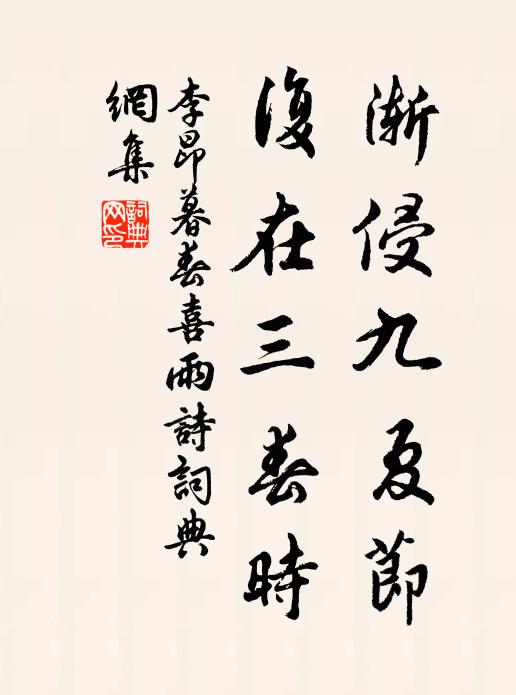 漸侵九夏節
復在三春時
李昂暮春喜雨詩詞典
網集
詞典網印